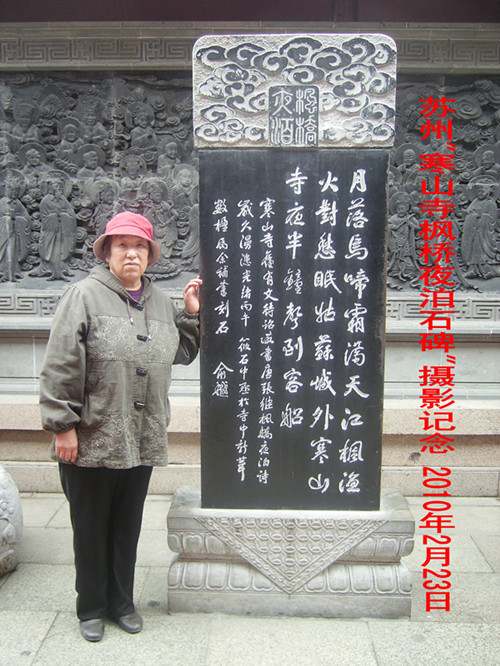 楓橋
夜泊
月落烏啼霜滿天江楓漁
火對愁眠姑蘇城外寒山
寺夜半鐘聲到客船
寒山寺舊有文待詔所書唐張繼楓橋夜泊詩
歲久漫漶光緒丙午筱石中丞於寺中新葺
數楹属余補書刻石
俞樾
苏州“寒山寺枫桥夜泊石碑”摄影记念 2010年2月23日